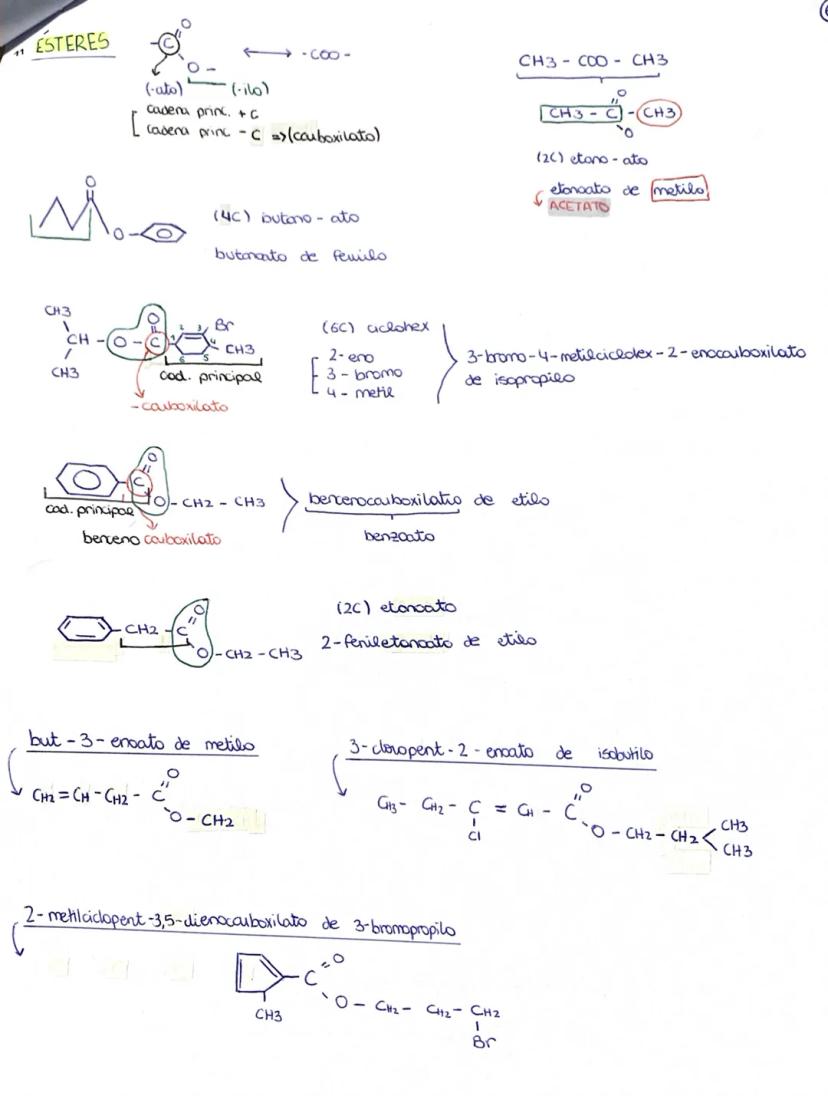 " ÉSTERES
-C
O
O -
↔ -COO-
(-ato) (-ilo)
cadena princ. + C
cadena princ - C => (carboxilato)
CH3 - COO - CH3
CH3 - C - CH3
O
O
(2C) etano - ato
etanoato de metilo
ACETATO
O
O
(4C) butano - ato
butanoato de fenilo
CH3
CH - O - C
O
CH3
1 2 3 4 5 6
Br
CH3
cad. principal
- carboxilato
(6C) ciclohex
2-eno
3-bromo
4-metil
3-bromo-4-metilciclohex-2-enocarboxilato
de isopropilo
O
C
O - CH2 - CH3
cad. principal
benceno carboxilato
bencenocarboxilato de etilo
benzoato
CH2 - C
O
O - CH2 - CH3
(2C) etanoato
2-feniletanoato de etilo
but-3-enoato de metilo
CH2=CH-CH2-C
O
O-CH2
3-cloropent-2-enoato de isobutilo
CH3- CH2- C = CH - C
O
Cl
O - CH2 - CH2
CH3
CH3
2-metilciclopent-3,5-dienocarboxilato de 3-bromopropilo
C
=O
CH3
O - CH2- CH2- CH2
Br